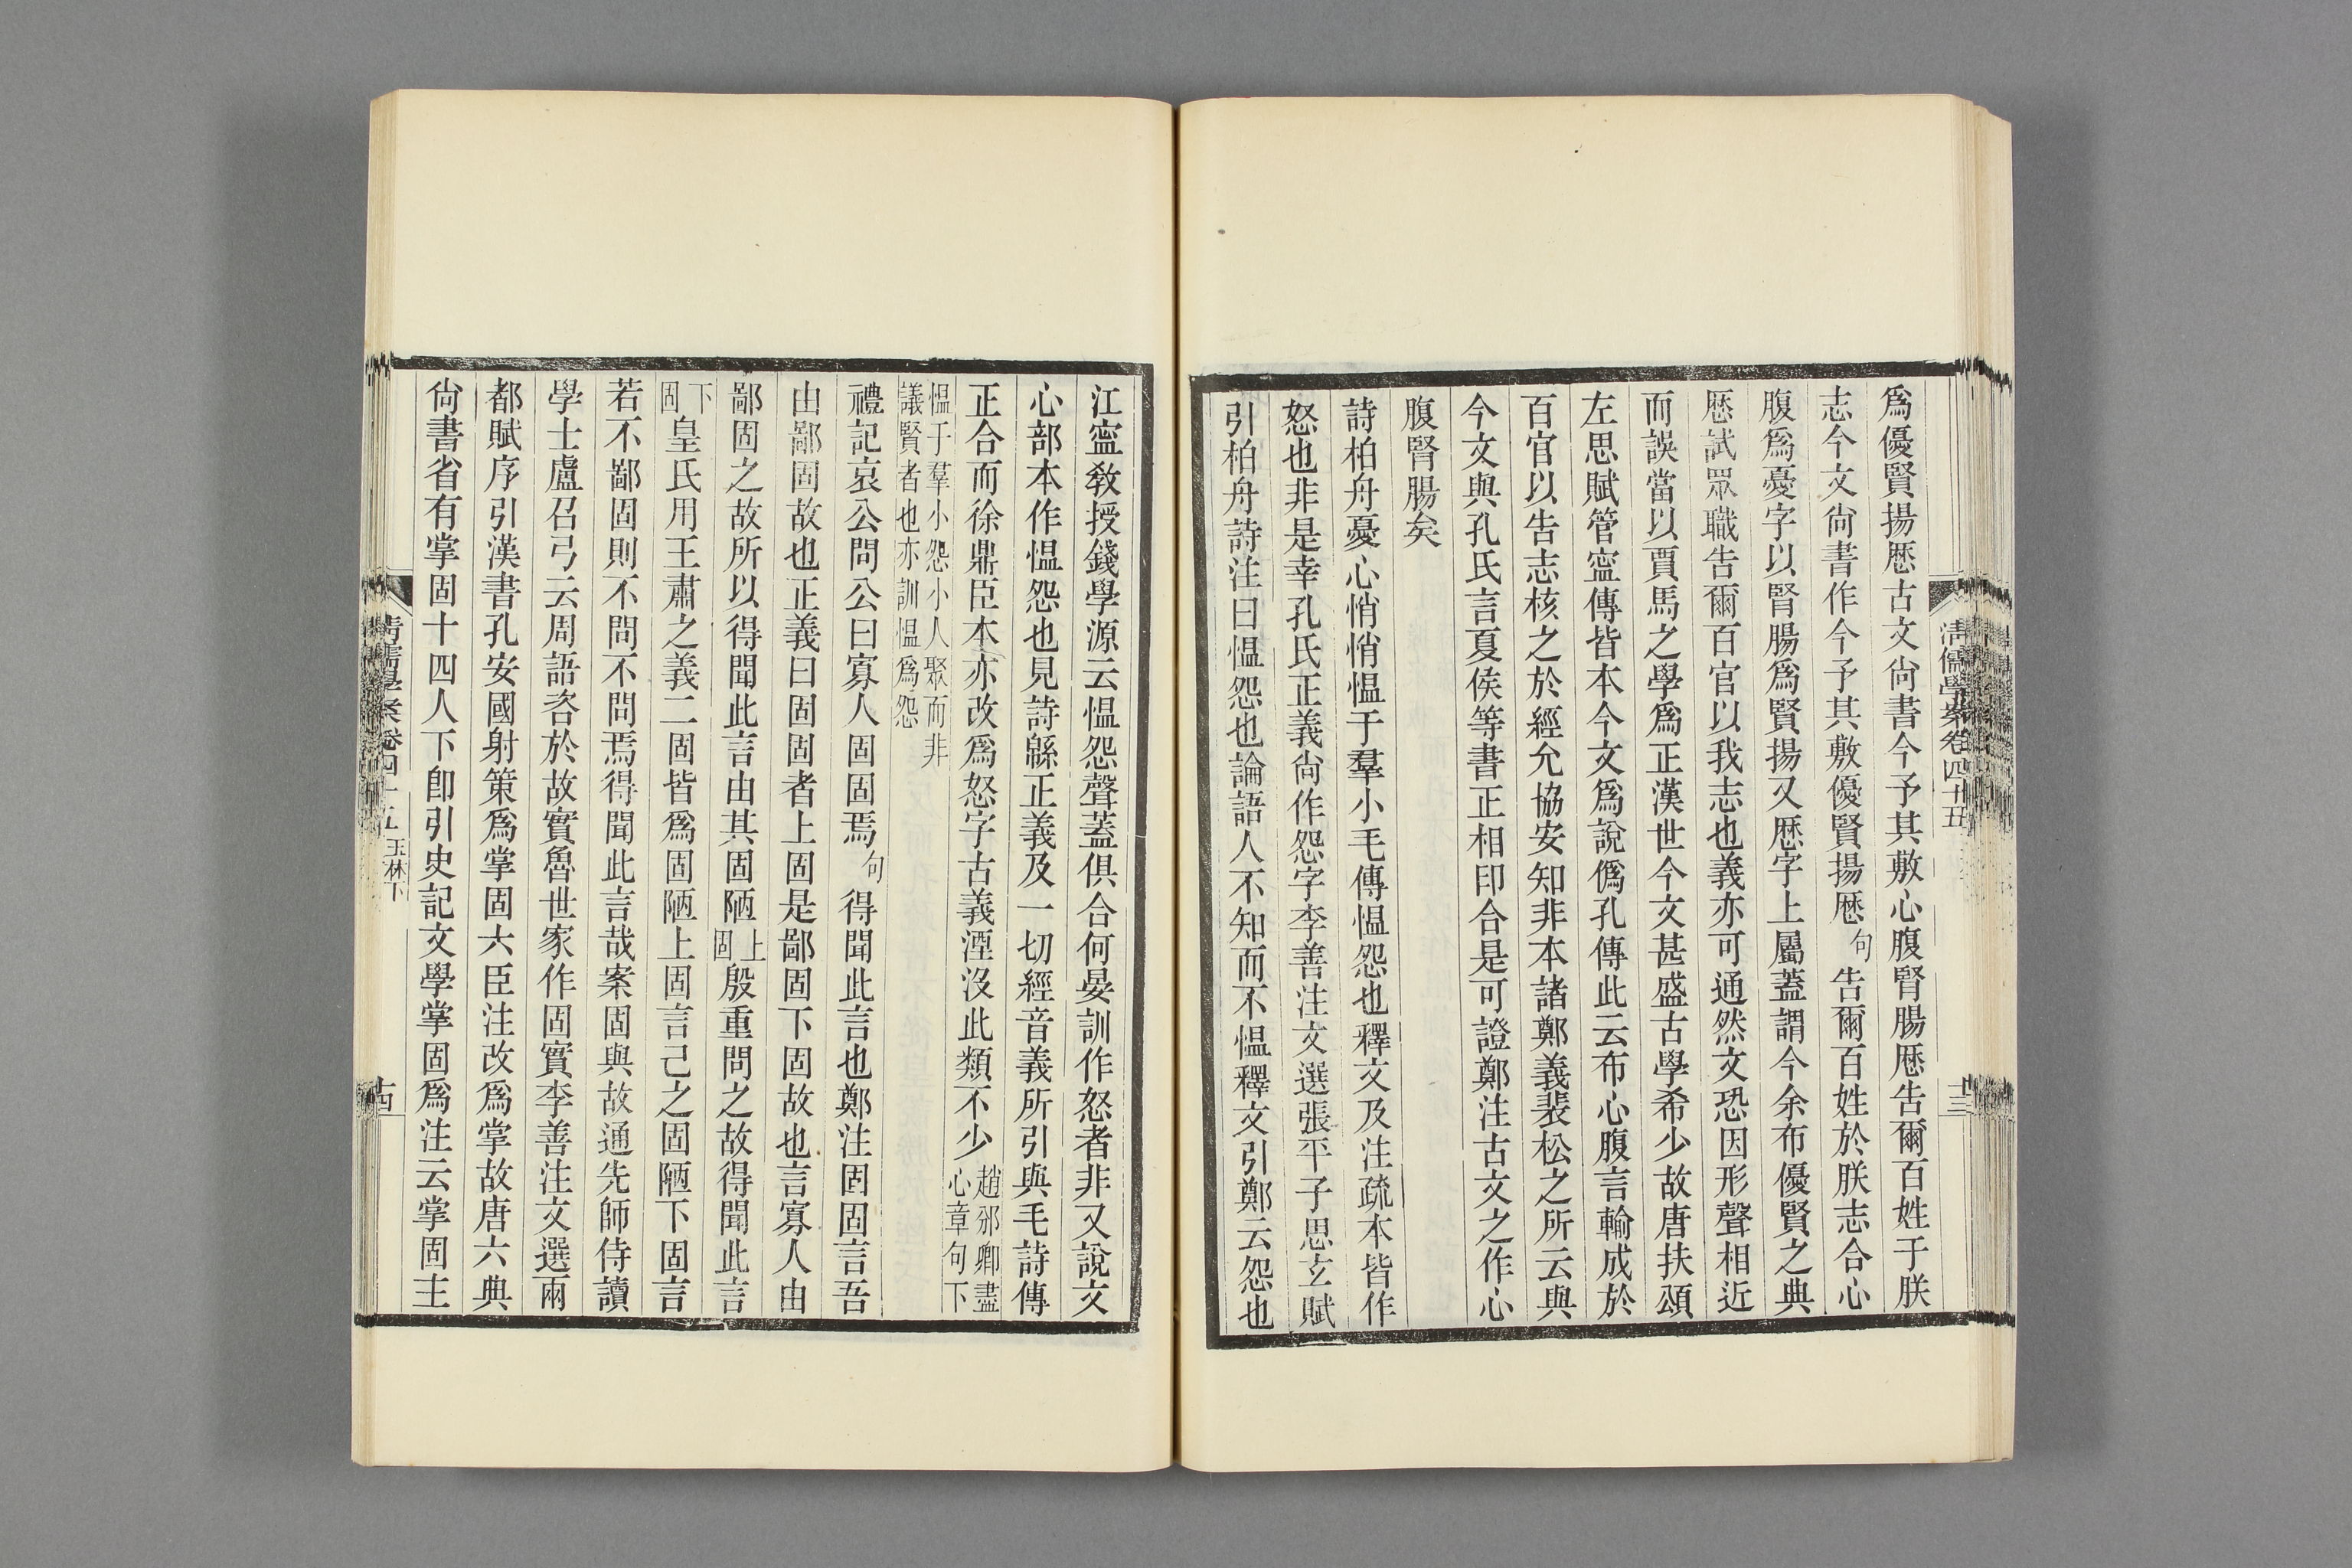 清儒學案卷四十五
十三
爲優賢揚歷古文尙書今予其敷心腹腎腸歷告爾百姓于朕
志今文尙書作今予其敷優賢揚歷句告爾百姓於朕志合心
腹爲憂字以腎腸爲賢揚又歷字上屬蓋謂今余布優賢之典
歷試眾職告爾百官以我志也義亦可通然文恐因形聲相近
而誤當以賈馬之學爲正漢世今文甚盛古學希少故唐扶頌
左思賦管寍傳皆本今文爲說僞孔傳此云布心腹言輸成於
百官以告志核之於經允協安知非本諸鄭義裴松之所云與
今文與孔氏言夏侯等書正相印合是可證鄭注古文之作心
腹腎腸矣
詩柏舟憂心悄悄慍于羣小毛傳慍怨也釋文及注疏本皆作
怒也非是幸孔氏正義尙作怨字李善注文選張平子思玄賦
引柏舟詩注曰慍怨也論語人不知而不慍釋文引鄭云怨也
江寍敎授錢學源云慍怨聲蓋俱合何晏訓作怒者非又說文
心部本作慍怨也見詩緜正義及一切經音義所引與毛詩傳
正合而徐鼎臣本亦改爲怒字古義湮沒此類不少趙邠卿盡
心章句下
慍于羣小怨小人聚而非
議賢者也亦訓慍爲怨
禮記哀公問公曰寡人固固焉句得聞此言也鄭注固固言吾
由鄙固故也正義曰固固者上固是鄙固下固故也言寡人由
鄙固之故所以得聞此言由其固陋上
固殷重問之故得聞此言
下
固皇氏用王肅之義二固皆爲固陋上固言己之固陋下固言
若不鄙固則不問不問焉得聞此言哉案固與故通先師侍讀
學士盧召弓云周語咨於故實魯世家作固實李善注文選兩
都賦序引漢書孔安國射策爲掌固六臣注改爲掌故唐六典
尙書省有掌固十四人下卽引史記文學掌固爲注云掌固主
清儒學案卷四十五 玉林下
十四